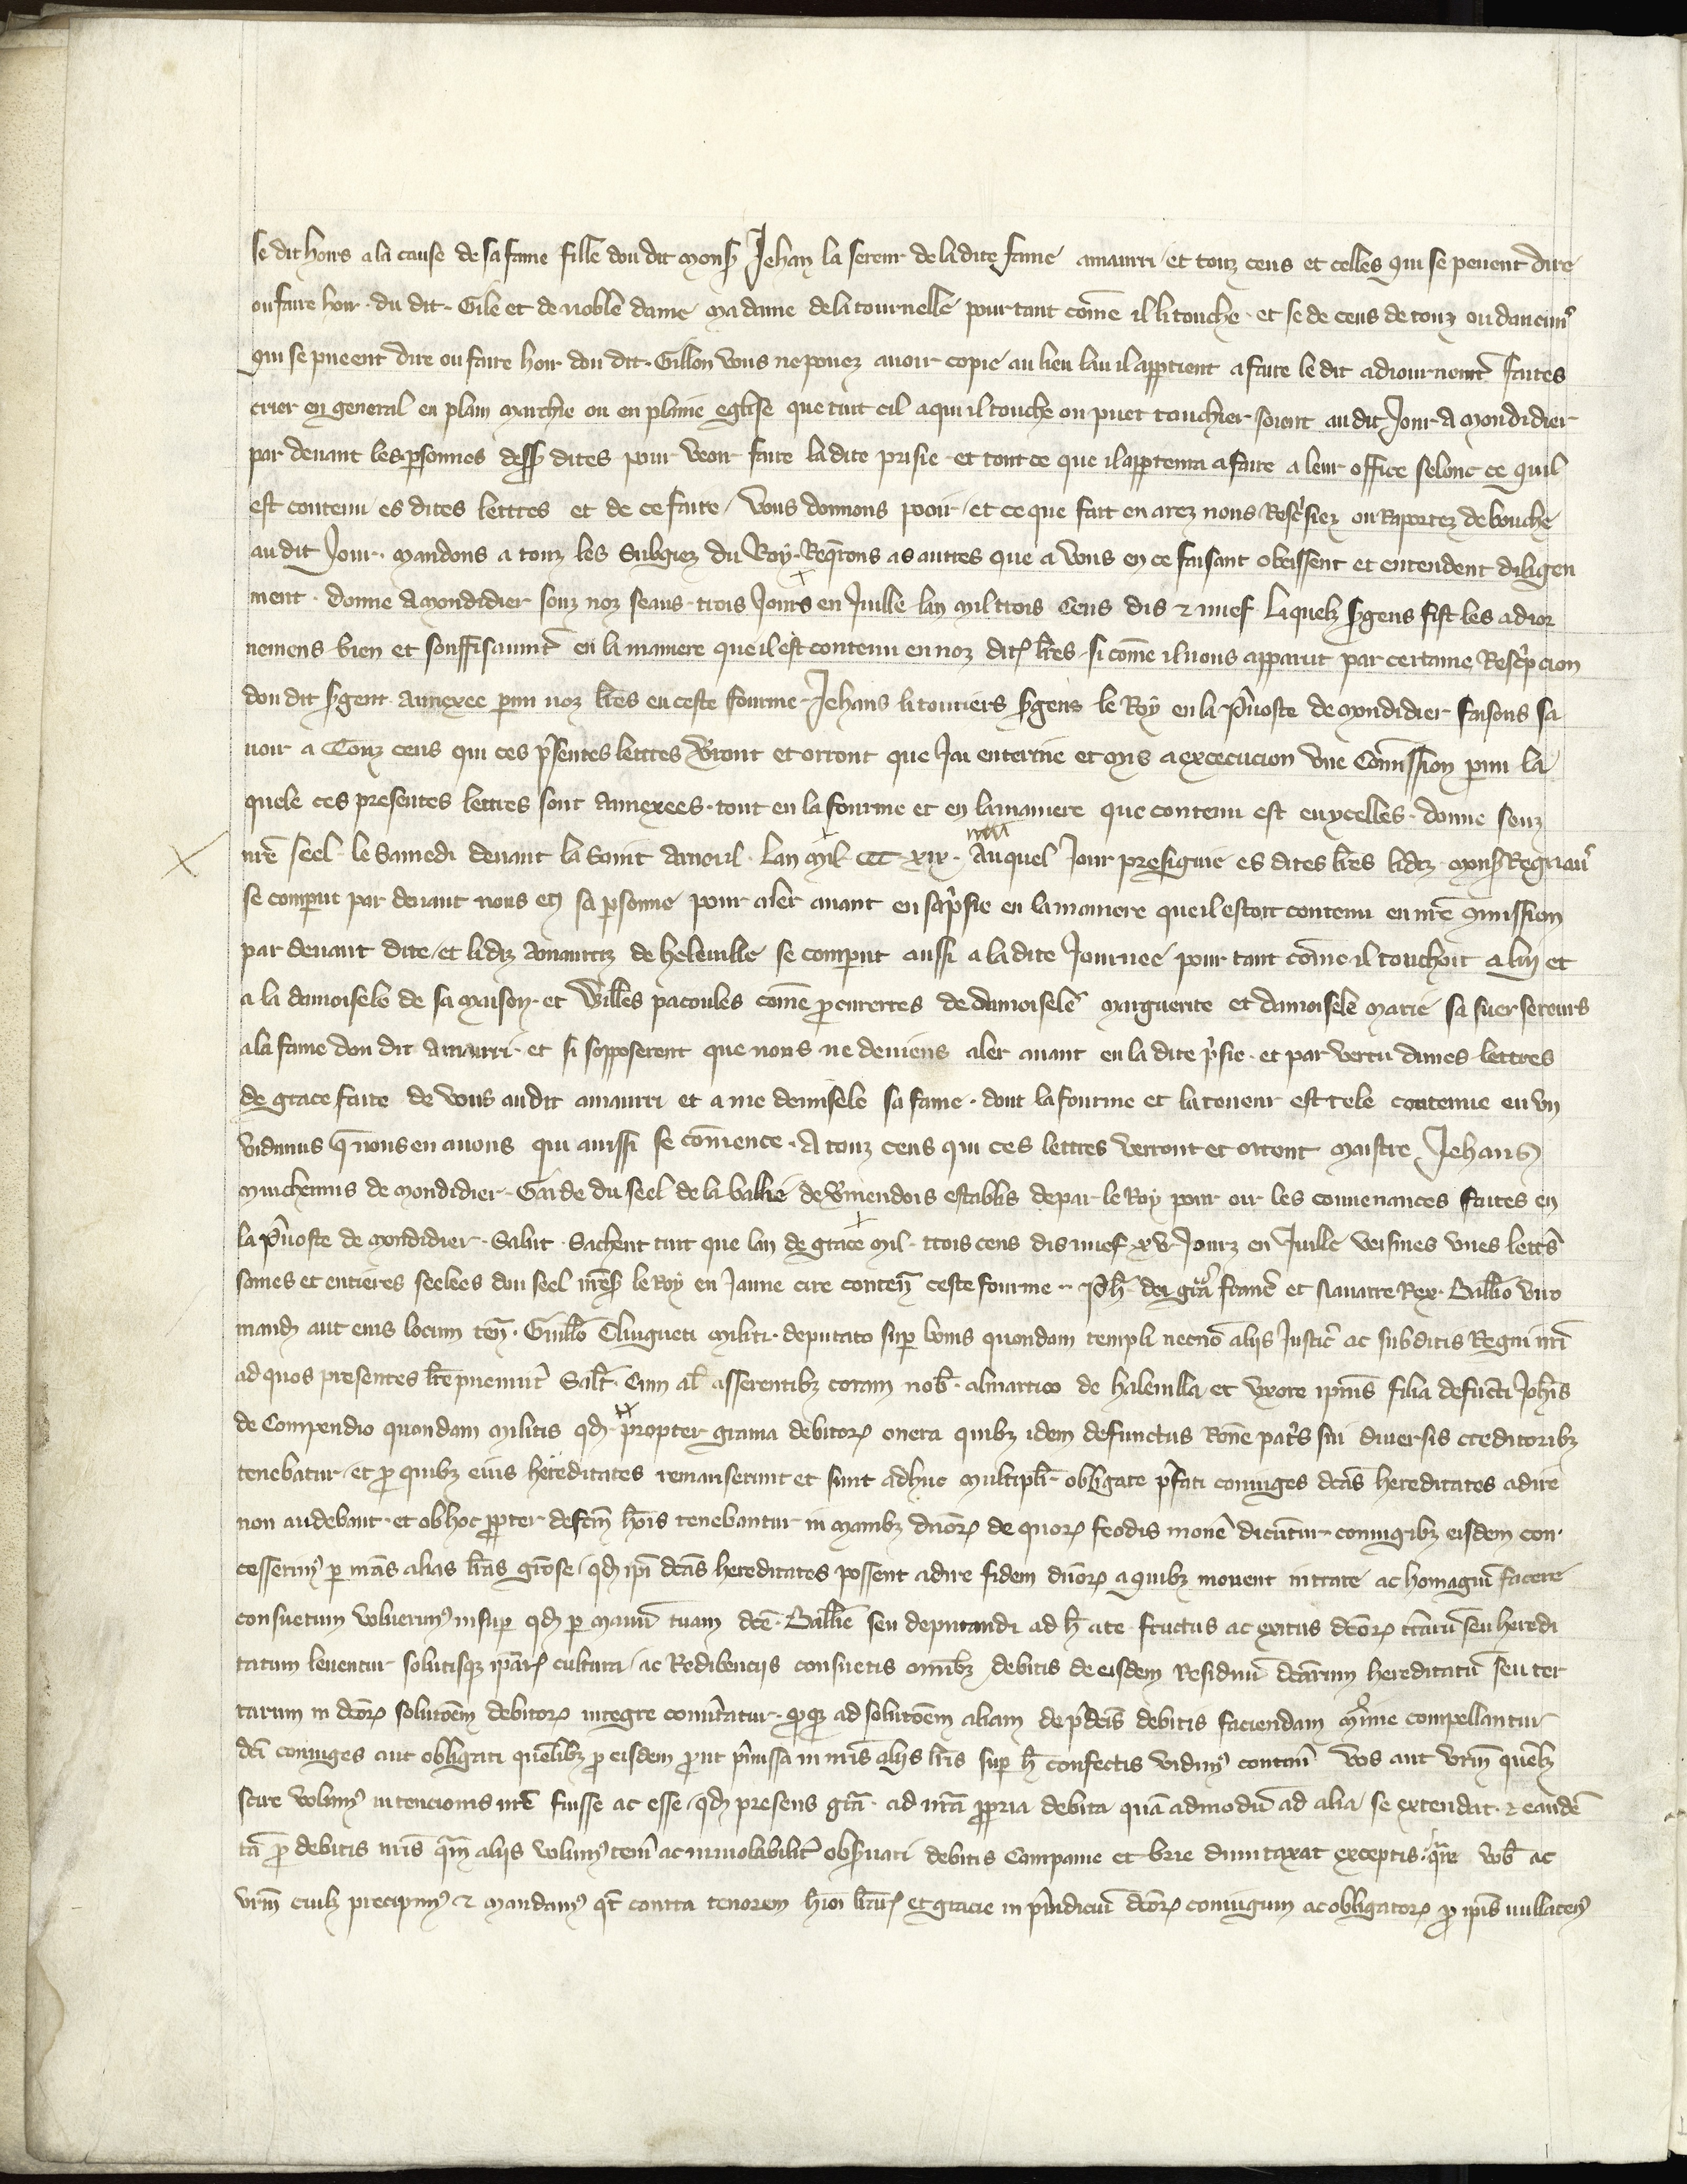 se dit hoirs a la cause de sa fame fille dou dit monsʼ Jehan la sereur de la dite fame amaurri et touz ceus et celles qui se peuent dire
ou faire hoir du dit Gile et de noble dame ma dame de la tournelle pour tant cōme il li touche et se de ceus de touz ou daucuns
qui se pueent dire ou faire hoir dou dit Gillon vous ne pouez auoir copie au lieu lau il appꝑtient a faire le dit adiournemt̄ faites
crier en general en plain marchie ou en plaine eglise que tuit cil a qui il touche ou puet touchier soient au dit Jour a mondidier
par deuant les ꝑsonnes dessꝰ dites pour veoir faire la dite prisie et tout ce que il appꝑtenra a faire a leur office selonc ce quil
est contenu es dites lettres et de ce faire vous donnons pooir et ce que fait en arez nous Rescͥsiez ou Raportez de bouche
au dit Jour mandons a touz les Subgiez du Roy Reqͬons as autres que a vous en ce faisant obeissent et entendent diligen
ment donne a mondidier souz noz seaus trois Jours en Juille lan mil trois Cens dis ⁊ nuef laquelz sʼgens fist les adior
nemens bien et souffisaument en la maniere que il est contenu en noz ditꝭ lr̄es si cōme il nous apparut par certaine Rescͥpcion
dou dit sʼgent annexee ꝑmi noz lr̄es en ceste fourme Jehans li toutiers sʼgens le Roy en la p̄uoste de mondidier faisons sa
uoir a Touz ceus qui ces p̄sentes lettres vʼront et orront que Jai enterine et mis a excecucion vne Cōmission ꝑmi la
quele ces presentes lettres sont annexees tout en la fourme et en la maniere que contenu est en ycelles donne souz
mē seel le Samedi deuant la Saint Arnoul lan mil CCC xix Auquel Jour presignie es dites lr̄es lidiz monsʼ Regnaut
se comparut par deuant nous en sa ꝑsonne pour aler auant en sa pͥsie en la maniere que il estoit contenu en nr̄e cōmission
par deuant dite et lidiz Amaurriz de heleuille se comparut aussi a la dite Journee pour tant cōme il touchoit a luy et
a la damoisele de sa maison et Will̄es pacoules cōme ꝓcurerres de damoisele marguerite et damoisele marie sa suer sereurs
a la fame dou dit amaurri et si sopposerent que nous ne deuiens aler auant en la dite pͥsie et par vertu dunes lettres
de grace faite de vous au dit amaurri et a me demisele sa fame dont la fourme et la teneur est tele contenue en vn
vidimus q̄ nous en auons qui aussi se cōmence A touz ceus qui ces lettres verront et orront maistre Jehans
marchennis de mondidier Garde du seel de la baillie de vʼmendois establis de par le Roy pour oir les conuenances faites en
la p̄uoste de mondidier Salut Sachent tuit que lan de grace mil trois cens dis nuef xv Jourz en Juille veismes vnes lettͬs
saines et entieres seelees dou seel nr̄esʼ le Roy en Jaune cire conten̄ ceste fourme Ph̄ dei grͣ franc̄ et Nauarre Rex Ballio viro
mand̄ aut eius locum ten̄ Guill̄o Clingueti militi deputato suꝑ bonis quondam templi necnō aliis Justic̄ ac subditis Regni nr̄i
ad quos presentes lr̄e puenint̄ Salt̄ Cum al̄ asserentibꝫ coram nob̄ almarrico de haleuilla et vxore ipius filia defuncti Joh̄is
de Compendio quondam militis qd̄ propter grauia debitorꝝ onera quibꝫ idem defunctus Rōne pat̄s sui diuersis creditoribꝫ
tenebatur et ꝓ quibꝫ eius hereditates remanserunt et sunt adhuc multiplr̄ obligate p̄fati coniuges dc̄as hereditates adire
non audebant et ob hoc ꝓpter defcm̄ hōis tenebantur in manibꝫ dn̄orꝝ de quorꝝ feodis mouē dicūtur coniugibꝫ eisdem con
cesserimꝰ ꝑ nr̄as alias lr̄as grōse qd̄ ip̄i dc̄as hereditates possent adire fidem dn̄orꝝ a quibꝫ mouent intrare ac homagiū facere
consuetum voluerimꝰ insuꝑ qd̄ ꝑ manū tuam dc̄e Ballie seu deputandi ad h̄ a te fructus ac exitus dc̄orꝝ tr̄arū seu heredi
tatum leuentur solutisqꝫ ip̄arꝝ cultura ac Redibenciis consuetis omībꝫ debitis de eisdem Residuū dc̄arum hereditatū seu ter
rarum in dc̄orꝝ solutōem debitorꝝ integre conūtatur ꝙqꝫ ad solutōem aliam de p̄dc̄is debitis faciendam mͥime compellantur
dc̄i coniuges aut obligati quēlibꝫ ꝓ eisdem ꝓut p̄missa in nr̄is aliis lr̄is suꝑ h̄ confectis vidimꝰ contineri vos aut vr̄m quēlꝫ
scire volumꝰ intencionis nr̄e fuisse ac esse qd̄ presens grā ad nr̄a ꝓpria debita quā admodū ad alia se extendat ⁊ eandē
tā ꝓ debitis nr̄is qͣm aliis volumꝰ ten̄i ac inuiolabilit̄ obsʼuari debitis Campanie et brie dumtaxat exceptis qͣre vob̄ ac
vr̄m cuilꝫ precipimꝰ ⁊ mandamꝰ qt̄ contra tenorem hmōi lr̄arꝝ et gracie in p̄iudiciū dc̄orꝝ coniugum ac obligatorꝝ ꝓ ip̄is nullatenꝰ